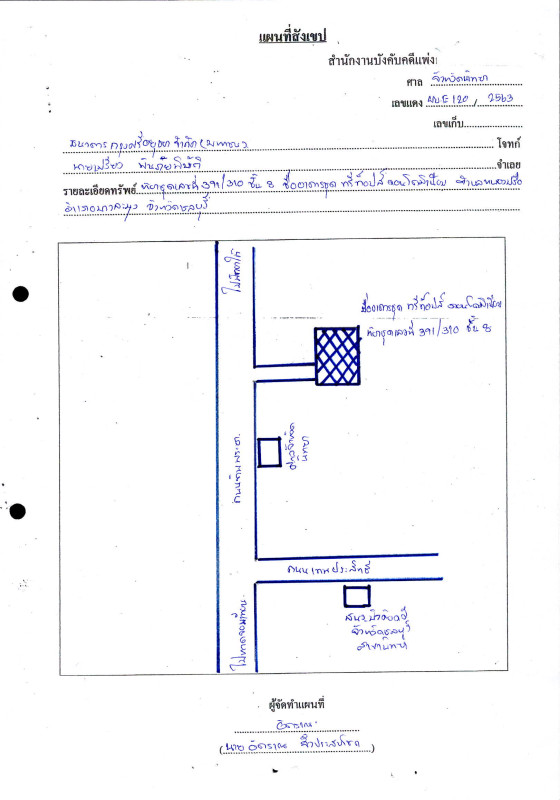 แผนที่สังเขป
สำนักงานบังคับคดีแพ่ง
ศาล จังหวัดพัทยา
เลขแดง ผบE120 / 2563
เลขเก็บ
ธนาคารกรุงศรีอยุธยา จำกัด (มหาชน) โจทก์
นายเปรียว จำเลย
รายละเอียดทรัพย์ ห้องชุดเลขที่ 391/310 ชั้น 8 ชื่ออาคารชุด ทรีท็อปส์ คอนโดมิเนียม ตำบลหนองปรือ
อำเภอบางละมุง จังหวัดชลบุรี
ไปพัทยาใต้
ชื่ออาคารชุด ทรีท็อปส์ คอนโดมิเนียม
ห้องชุดเลขที่ 391/310 ชั้น 8
ศาลจังหวัด
พัทยา
ถนนเทพประสิทธิ์
ไปหาดจอมเทียน
สนง.บังคับคดี
จังหวัดชลบุรี
สาขาพัทยา
ผู้จัดทำแผนที่